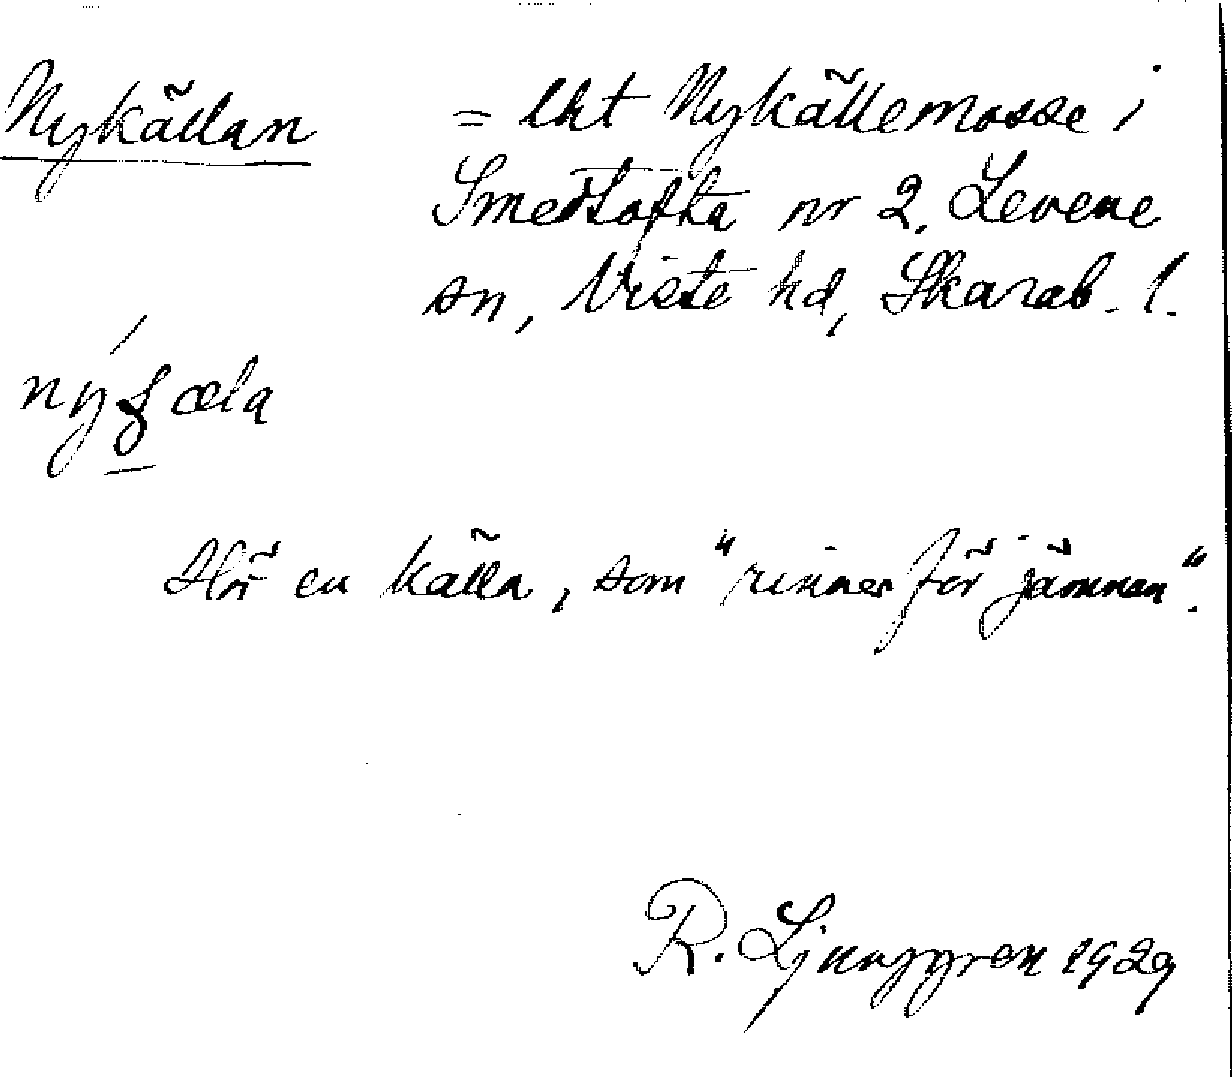 Nykällan = lht Nykällemosse i
Smedtofta nr 2, Levene
sn, Viste hd, Skarab. l.
en källa, som "rinner för jämnan".
R. Ljunggren 1929